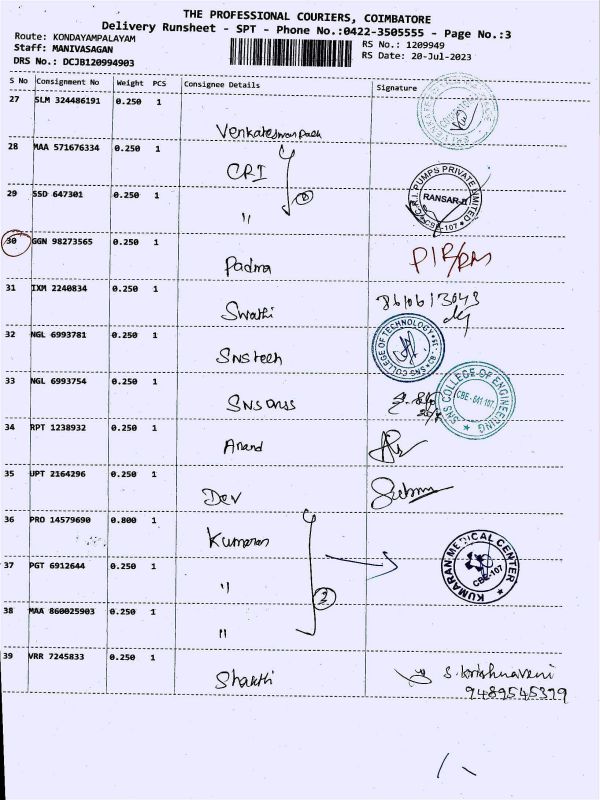 THE PROFESSIONAL COURIERS, COIMBATORE
Delivery Runsheet - SPT - Phone No.:0422-3505555 - Page No.:3
Route: KONDAYAMPALAYAM
Staff: MANIVASAGAN
DRS No.: DCJB120994903
RS No.: 1209949
RS Date: 20-Jul-2023
S No Consignment No Weight PCS Consignee Details Signature
27 SLM 324486191 0.250 1
Venkateswan
28 MAA 571676334 0.250 1
CRI
29 SSD 647301 0.250 1
"
C.R.I. PUMPS PRIVATE LIMITED
RANSAR-II
CBE-107
30 GGN 98273565 0.250 1
Padma
31 IXM 2240834 0.250 1
Swathi
8610613043
32 NGL 6993781 0.250 1
SNS tech
SNS COLLEGE OF TECHNOLOGY
33 NGL 6993754 0.250 1
SNS
SNS COLLEGE OF ENGINEERING
CBE - 641 107
34 RPT 1238932 0.250 1
Anand
35 UPT 2164296 0.250 1
Dev
36 PRO 14579690 0.800 1
Kumaran
37 PGT 6912644 0.250 1
"
KUMARAN MEDICAL CENTER
CBE-107
3
38 MAA 860025903 0.250 1
"
39 VRR 7245833 0.250 1
Shakthi
S. Krishnaveni
9489545399